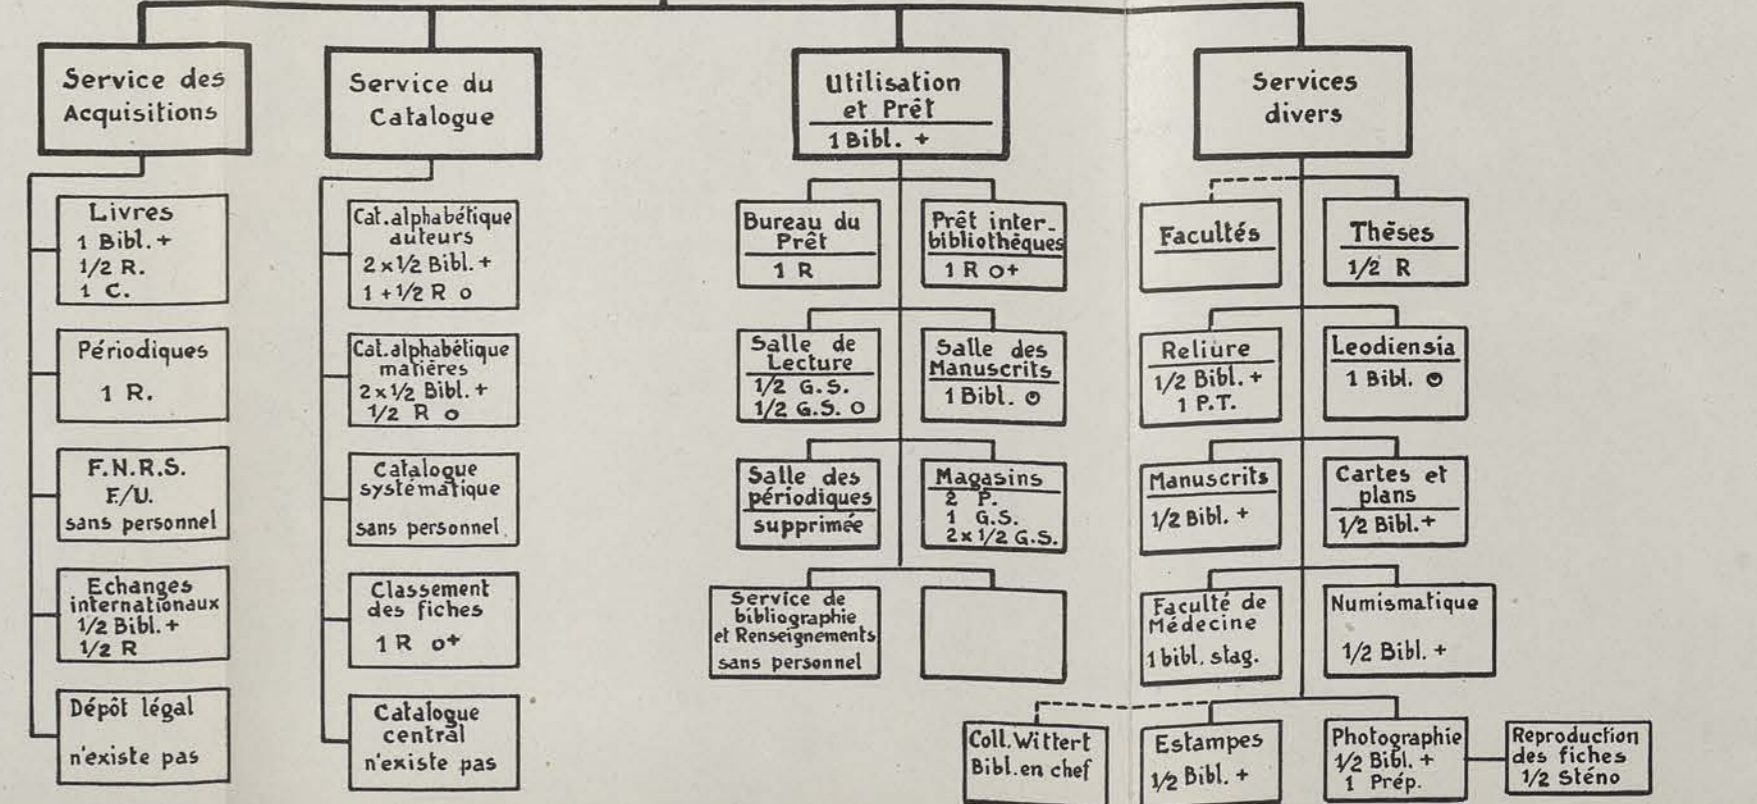 Service des
Acquisitions
Livres
1 Bibl. +
1/2 R.
1 C.
Périodiques
1 R.
F.N.R.S.
F./U.
sans personnel
Echanges
internationaux
1/2 Bibl. +
1/2 R
Dépôt légal
n'existe pas
Service du
Catalogue
Cat. alphabétique
auteurs
2 x 1/2 Bibl. +
1 + 1/2 R o
Cat. alphabétique
matières
2 x 1/2 Bibl. +
1/2 R o
Catalogue
systématique
sans personnel.
Classement
des fiches
1 R o+
Catalogue
central
n'existe pas
Utilisation
et Prêt
1 Bibl. +
Bureau du
Prêt
1 R
Prêt inter-
bibliothèques
1 R o+
Salle de
Lecture
1/2 G.S.
1/2 G.S. o
Salle des
Manuscrits
1 Bibl. ⊙
Salle des
périodiques
supprimée
Magasins
2 P.
1 G.S.
2 x 1/2 G.S.
Service de
bibliographie
et Renseignements
sans personnel
Services
divers
Facultés
Thèses
1/2 R
Reliure
1/2 Bibl. +
1 P.T.
Leodiensia
1 Bibl. ⊙
Manuscrits
1/2 Bibl. +
Cartes et
plans
1/2 Bibl. +
Faculté de
Médecine
1 bibl. stag.
Numismatique
1/2 Bibl. +
Coll. Wittert
Bibl. en chef
Estampes
1/2 Bibl. +
Photographie
1/2 Bibl. +
1 Prép.
Reproduction
des fiches
1/2 Sténo